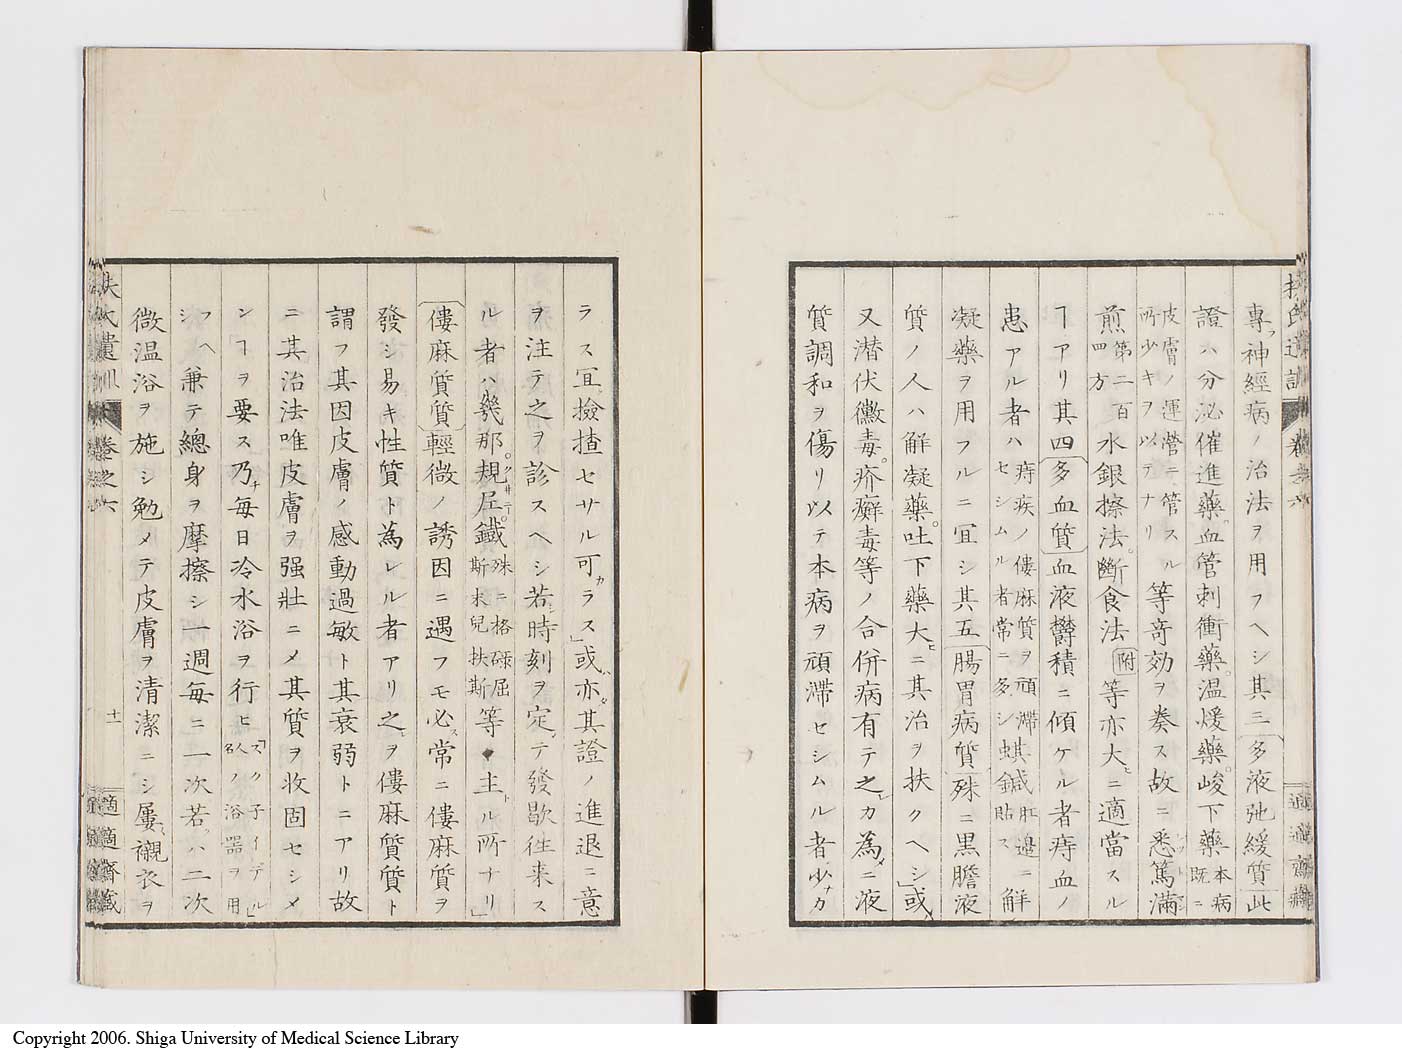 專ラ神經病ノ治法ヲ用フヘシ其三多液弛緩質此
證ハ分泌催進藥血管刺衝藥温煖藥峻下藥本病既ニ
皮膚ノ運營ニ管スル所少キヲ以テナリ等奇効ヲ奏ス故ニ悉篤滿
煎第二百四方水銀擦法斷食法附等亦大ニ適當スル
ヿアリ其四多血質血液鬱積ニ傾ケル者痔血ノ
患アル者ハ痔疾ノ僂麻質ヲ頑滯セシムル者常ニ多シ蜞鍼肛邊ニ貼ス解
凝藥ヲ用フルニ宜シ其五腸胃病質殊ニ黒膽液
質ノ人ハ解凝藥吐下藥大ニ其治ヲ扶クヘシ或
又潜伏黴毒疥癬毒等ノ合併病有テ之カ為ニ液
質調和ヲ傷リ以テ本病ヲ頑滯セシムル者少カ
ラス宜撿揸セサル可ラス或亦其證ノ進退ニ意
ヲ注テ之ヲ診スヘシ若時刻ヲ定テ發歇往来ス
ル者ハ幾那規尼鐵殊ニ格碌屈斯求兒扶斯等主ル所ナリ
僂麻質質輕微ノ誘因ニ遇フモ必常ニ僂麻質ヲ
發シ易キ性質ト為レル者アリ之ヲ僂麻質質ト
謂フ其因皮膚ノ感動過敏ト其衰弱トニアリ故
ニ其治法唯皮膚ヲ强壯ニメ其質ヲ收固セシメ
ンヿヲ要ス乃毎日冷水浴ヲ行ヒスク子イデル人名ノ浴器ヲ用
フヘシ兼テ總身ヲ摩擦シ一週毎ニ一次若ハ二次
微温浴ヲ施シ勉メテ皮膚ヲ清潔ニシ屢襯衣ヲ
扶氏遺訓 卷之六
十一
適適齋藏
Copyright 2006. Shiga University of Medical Science Library